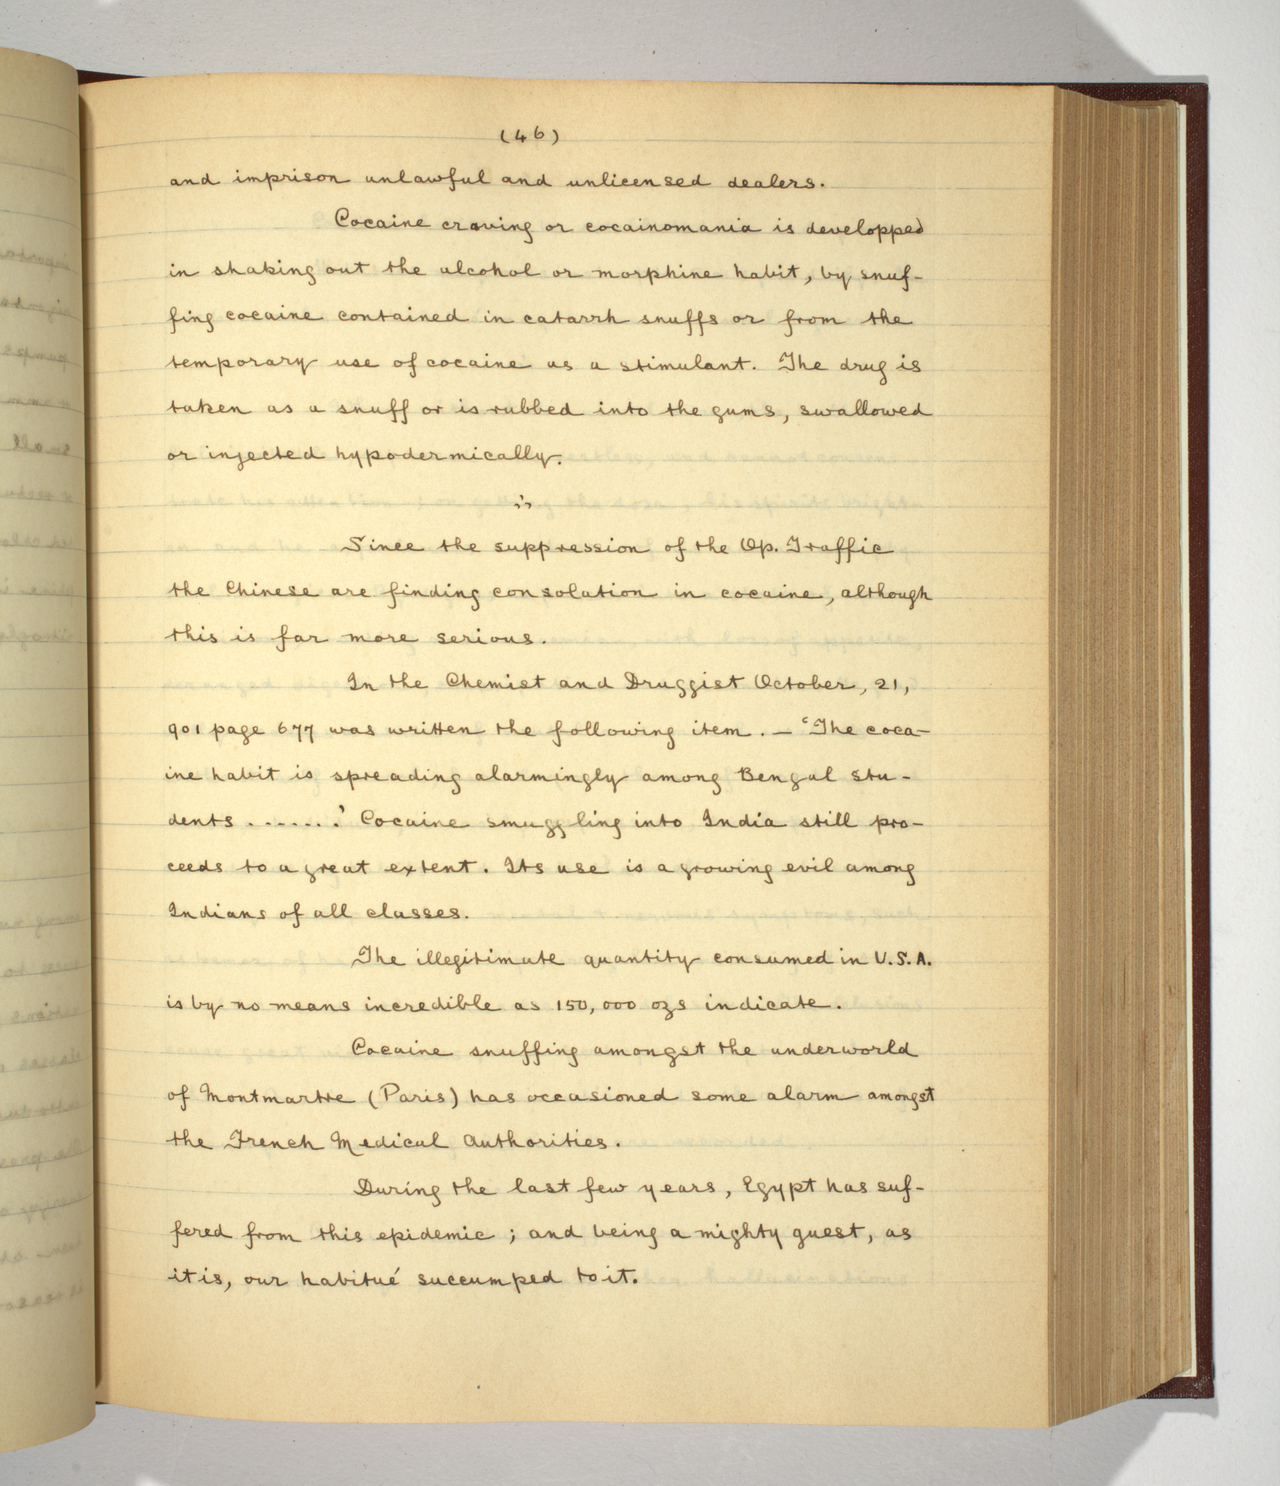 (46)
and imprison unlawful and unlicensed dealers.
Cocaine craving or cocainomania is developped
in shaking out the alcohol or morphine habit, by snuf-
fing cocaine contained in catarrh snuffs or from the
temporary use of cocaine as a stimulant. The drug is
taken as a snuff or is rubbed into the gums, swallowed
or injected hypodermically.
Since the suppression of the Op. Traffic
the Chinese are finding consolation in cocaine, although
this is far more serious.
In the Chemist and Druggist October, 21,
901 page 677 was written the following item. — 'The coca-
ine habit is spreading alarmingly among Bengal stu-
dents .......' Cocaine smuggling into India still pro-
ceeds to a great extent. Its use is a growing evil among
Indians of all classes.
The illegitimate quantity consumed in U.S.A.
is by no means incredible as 150,000 ozs indicate.
Cocaine snuffing amongst the underworld
of Montmartre (Paris) has occasioned some alarm amongst
the French Medical Authorities.
During the last few years, Egypt has suf-
fered from this epidemic ; and being a mighty guest, as
it is, our habitué succumped to it.